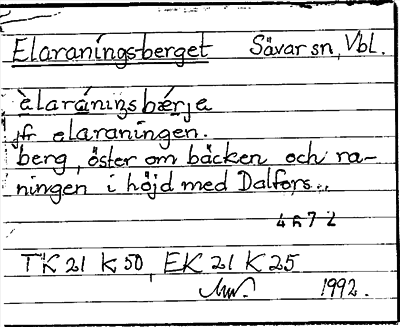 Elaraningsberget Sävar sn, Vbl.
èlaráninɡsbærje
jfr elaraningen.
berg, öster om bäcken och ra-
ningen i höjd med Dalfors.
4672
TK 21 K 50, EK 21 K 25
1992.